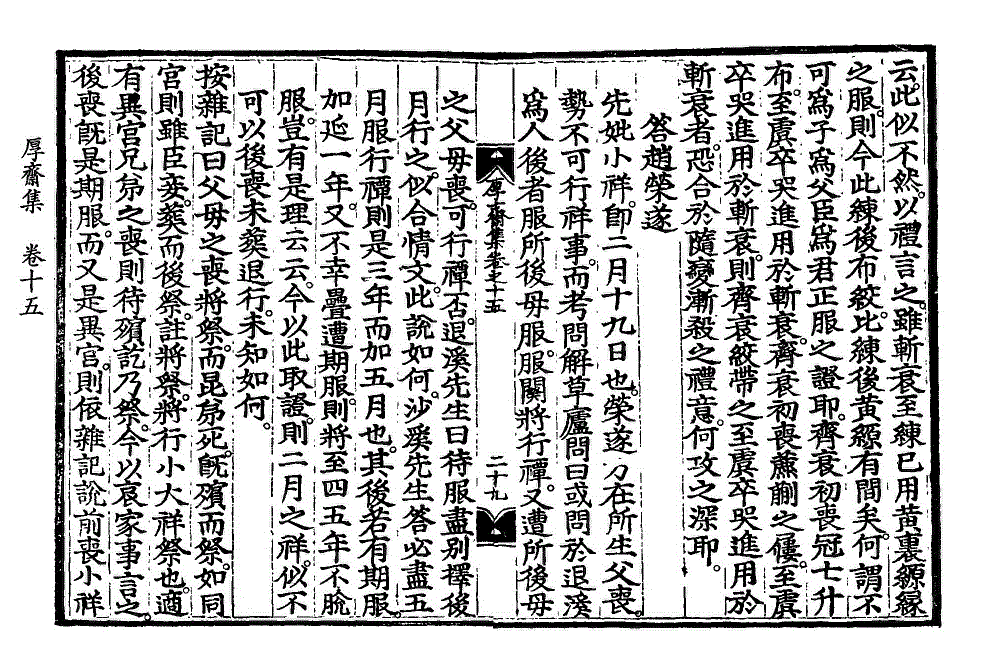 云。此似不然。以禮言之。雖斬衰至練已用黃裏縓緣
之服。則今此練後布絞。比練後黃縓有間矣。何謂不
可爲子爲父臣爲君正服之證耶。齊衰初喪冠七升
布。至虞卒哭進用於斬衰。齊衰初喪藨蒯之屨。至虞
卒哭進用於斬衰。則齊衰絞帶之至虞卒哭進用於
斬衰者。恐合於隨變漸殺之禮意。何攻之深耶。
答趙榮遂
先妣小祥。卽二月十九日也。榮遂方在所生父喪。
勢不可行祥事。而考問解草廬問曰或問於退溪
爲人後者服所後母服。服闋將行禫。又遭所後母
厚齋集卷之十五
二十九
之父母喪。可行禫否。退溪先生曰待服盡別擇後
月行之。似合情文。此說如何。沙溪先生答必盡五
月服行禫則是三年而加五月也。其後若有期服。
加延一年。又不幸疊遭期服。則將至四五年不脫
服。豈有是理云云。今以此取證。則二月之祥。似不
可以後喪未葬退行。未知如何。
按雜記曰父母之喪將祭。而昆弟死。旣殯而祭。如同
宮則雖臣妾。葬而後祭。註將祭。將行小大祥祭也。適
有異宮兄弟之喪則待殯訖乃祭。今以哀家事言之。
後喪旣是期服。而又是異宮。則依雜記說前喪小祥
厚齋集　卷十五